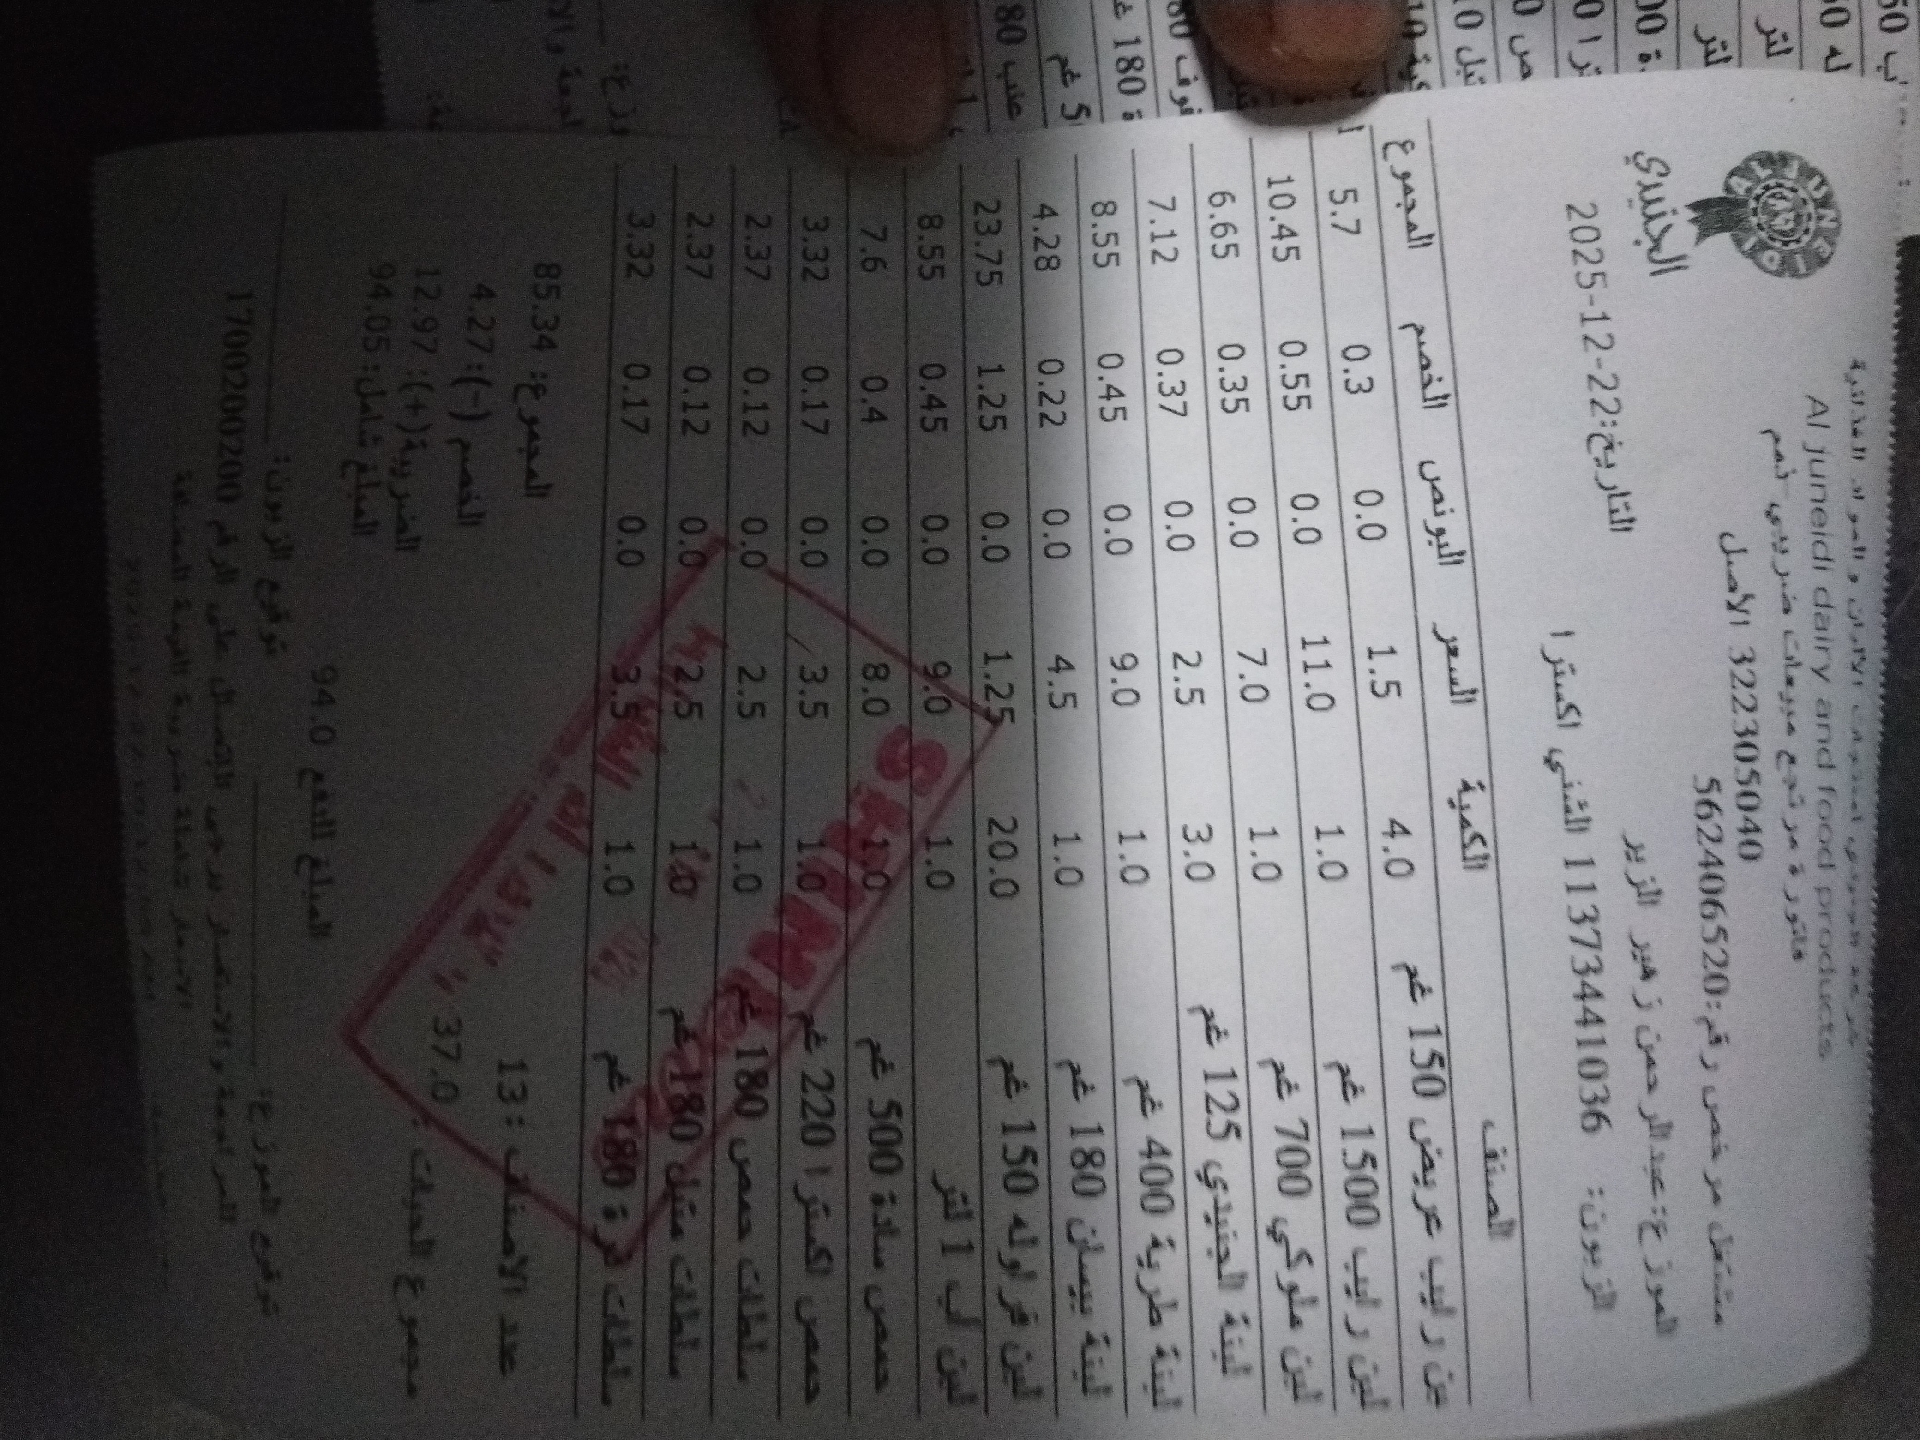 ALJUNEIDI
الجنيدي
Al juneidi dairy and food products
فاتورة مرتجع مبيعات ضريبي-ذمم
322305040 الأصل
مشتغل مرخص رقم:562406520
الموزع:عبدالرحمن زهير الزير
التاريخ:22-12-2025
الزبون: 1137344 1036 الشني اكسترا
الصنف الكمية السعر البونص الخصم المجموع
لبن رايب عريض 150 غم 4.0 1.5 0.0 0.3 5.7
لبن رايب 1500 غم 1.0 11.0 0.0 0.55 10.45
لبن ملوكي 700 غم 1.0 7.0 0.0 0.35 6.65
لبنة الجنيدي 125 غم 3.0 2.5 0.0 0.37 7.12
لبنة طرية 400 غم 1.0 9.0 0.0 0.45 8.55
لبنة بيسان 180 غم 1.0 4.5 0.0 0.22 4.28
لبن فراوله 150 غم 20.0 1.25 0.0 1.25 23.75
لبن اب 1 لتر 1.0 9.0 0.0 0.45 8.55
حمص سادة 500 غم 1.0 8.0 0.0 0.4 7.6
حمص اكسترا 220 غم 1.0 3.5 0.0 0.17 3.32
سلطات حمص 180 غم 1.0 2.5 0.0 0.12 2.37
سلطات متبل 180 غم 1.0 2.5 0.0 0.12 2.37
سلطات ذرة 180 غم 1.0 3.5 0.0 0.17 3.32
عدد الاصناف: 13 المجموع: 85.34
الخصم (-): 4.27
مجموع الحبات : 37.0 الضريبة(+): 12.97
المبلغ شامل: 94.05
المبلغ للدفع 94.0
توقيع الموزع: توقيع الزبون:
للمراجعة والاستفسار يرجى الاتصال على الرقم 1700200200
الاسعار شاملة ضريبة القيمة المضافة